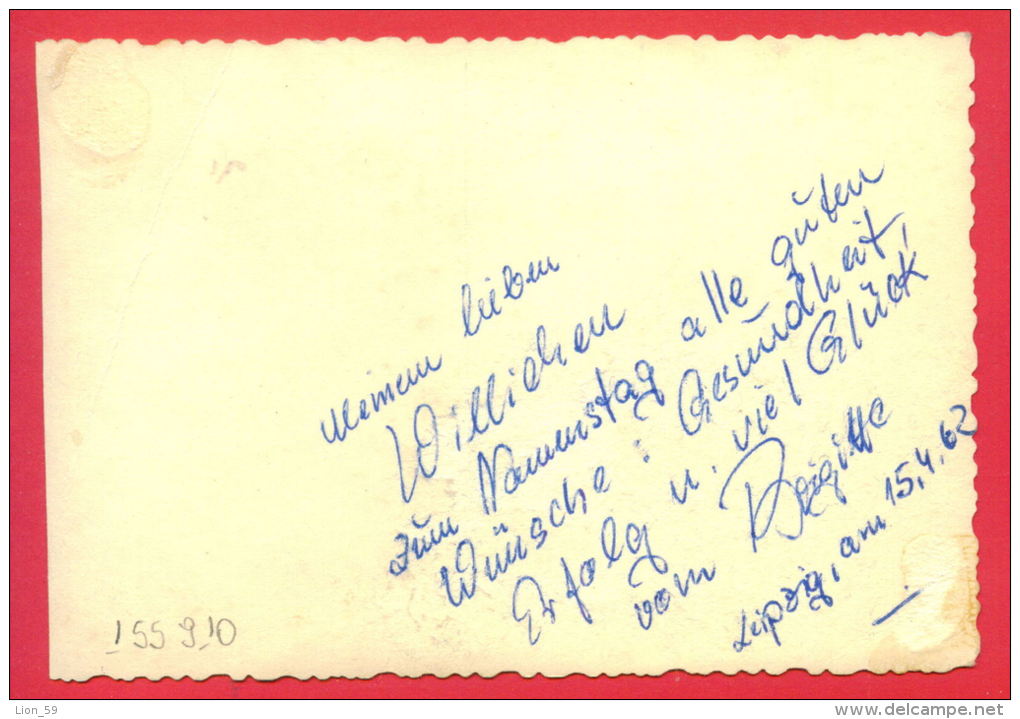 Meinem lieben
Willichen
zum Namenstag alle guten
Wünsche: Gesundheit,
Erfolg u. viel Glück
vom Brigitte
Leipzig, am 15.4.62
155910
Lion_59
www.delcampe.net